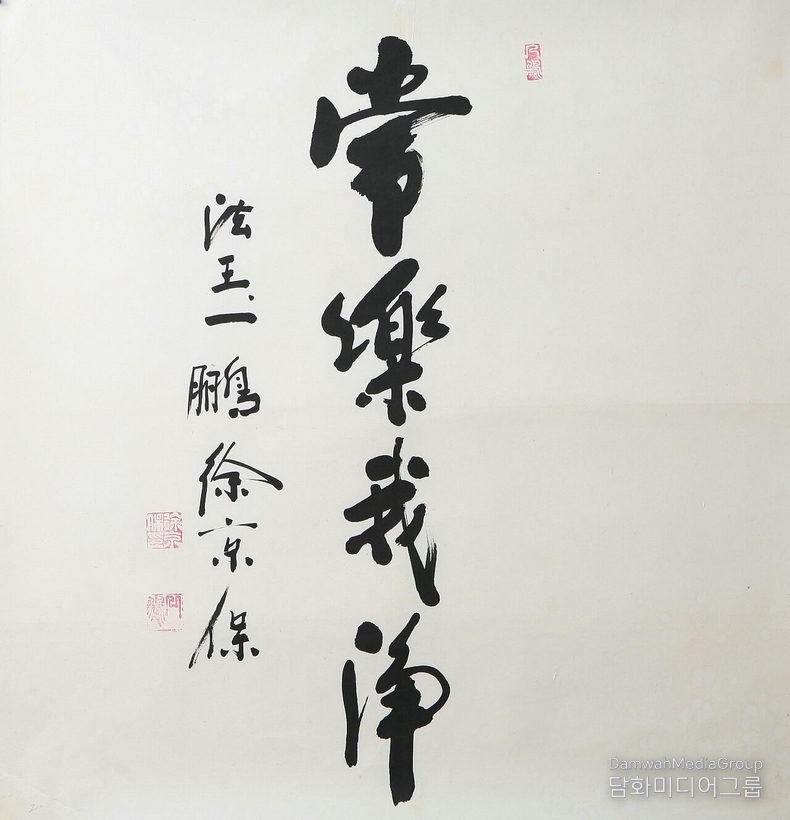 常樂我淨
法王一鵬徐京保
DamwanMediaGroup
담화미디어그룹